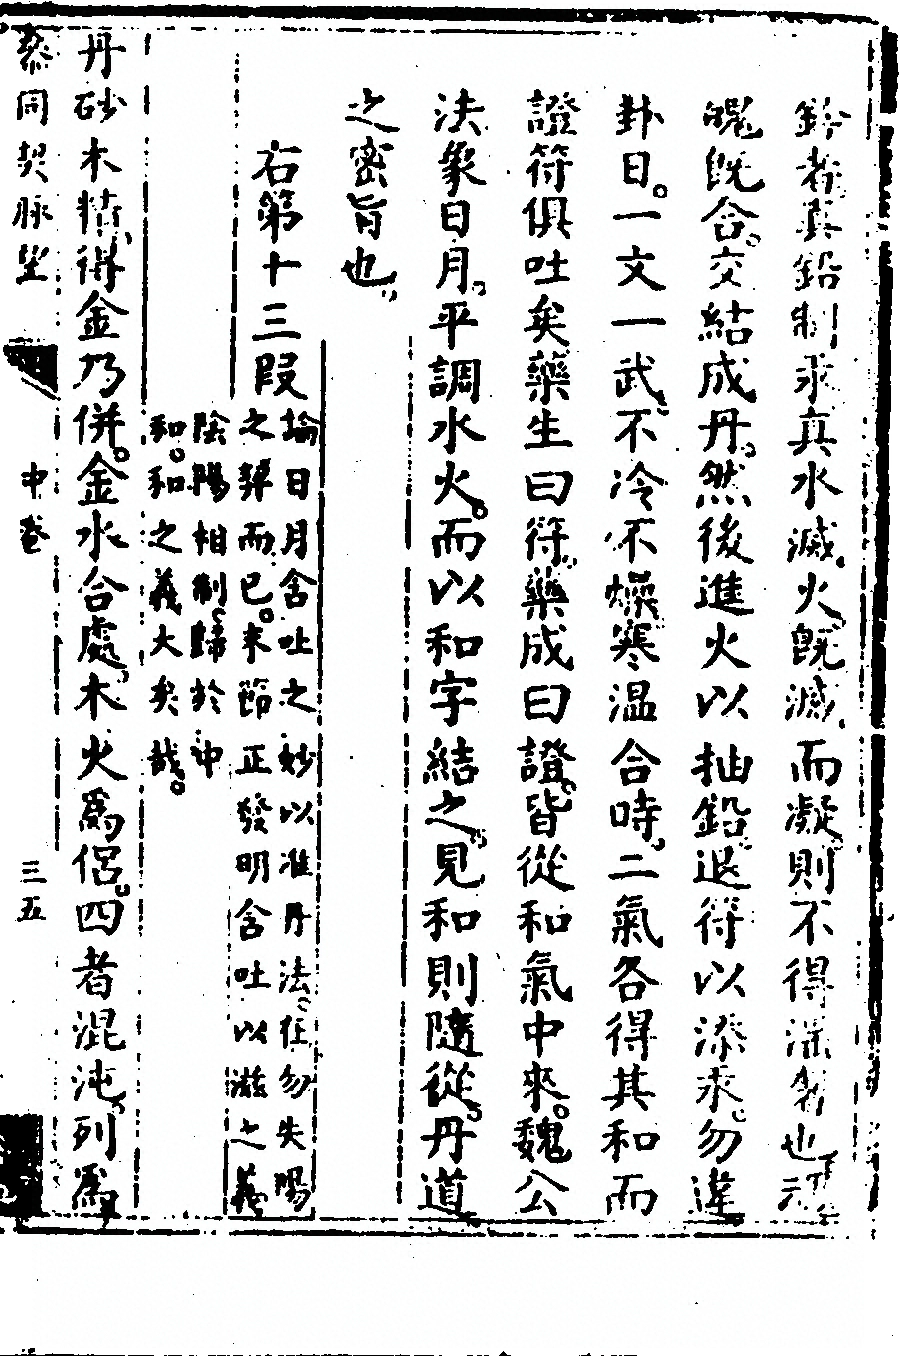 鉛者真鉛制汞真水滅火既滅而凝則不得深著也魂
魄既合交結成丹然後進火以抽鉛退符以添汞勿違
卦日一文一武不冷不燥寒温合時二氣各得其和而
證符俱吐矣藥生曰符藥成曰證皆從和氣中來魏公
法象日月平調水火而以和字結之見和則隨從丹道
之密旨也
右第十三段
論日月含吐之妙以准丹法任勿失陽
之算而已末節正發明含吐以滋之義
陰陽相制歸於中
和和之義大矣哉
丹砂木精得金乃併金水合處木火爲侶四者混沌列爲
參同契脉望 中卷 三五